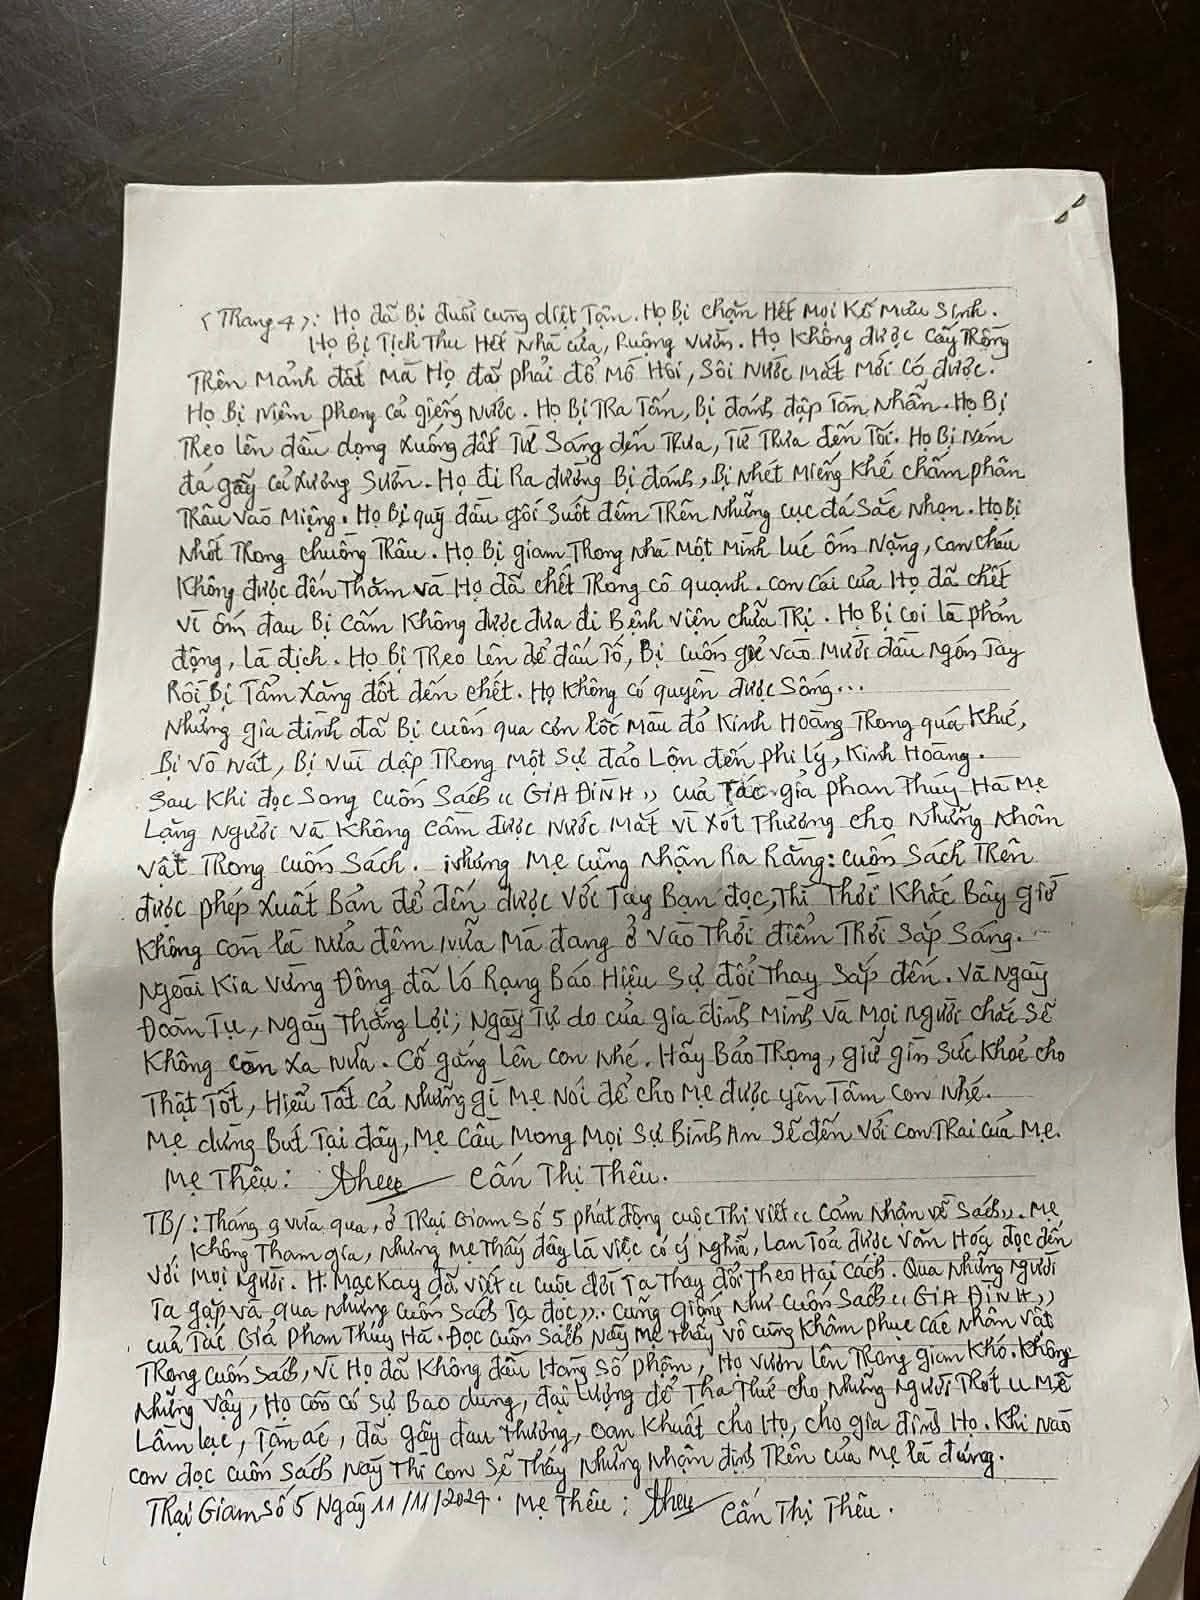 (Trang 4): Họ đã Bị đuổi cùng diệt Tận. Họ Bị chặn Hết Mọi Kế Mưu Sinh.
Họ Bị Tịch Thu Hết Nhà cửa, Ruộng vườn. Họ Không được Cấy Trồng
Trên Mảnh đất Mà Họ đã phải đổ Mồ Hôi, Sôi Nước Mắt Mới Có được.
Họ Bị Niêm phong cả giếng Nước. Họ Bị Tra Tấn, Bị đánh đập Tàn Nhẫn. Họ Bị
Treo lên đầu dọng xuống đất Từ Sáng đến Trưa, Từ Trưa đến Tối. Họ Bị Ném
đá gãy cả xương Sườn. Họ đi Ra đường Bị đánh, Bị Nhét Miếng Khế chấm phân
Trâu vào Miệng. Họ Bị quỳ đầu gối Suốt đêm Trên Những cục đá Sắc Nhọn. Họ Bị
Nhốt Trong chuồng Trâu. Họ Bị giam Trong Nhà Một Mình lúc ốm Nặng, con cháu
Không được đến Thăm và Họ đã chết Trong cô quạnh. Con Cái của Họ đã chết
vì ốm đau Bị Cấm Không được đưa đi Bệnh viện chữa Trị. Họ Bị coi là phản
động, là địch. Họ Bị Treo lên để đấu Tố, Bị cuốn giẻ vào Mười đầu Ngón Tay
Rồi Bị Tẩm Xăng đốt đến chết. Họ Không có quyền được Sống...
Những gia đình đã Bị cuốn qua cơn lốc Màu đỏ Kinh Hoàng Trong quá Khứ,
Bị vỡ Nát, Bị vùi dập Trong Một Sự đảo Lộn đến phi lý, Kinh Hoàng.
Sau Khi đọc Song cuốn Sách "GIA ĐÌNH" của Tác giả phan Thúy Hà Mẹ
Lặng Người và Không Cầm được Nước Mắt vì Xót Thương cho Những Nhân
vật Trong cuốn Sách. Nhưng Mẹ cũng Nhận Ra Rằng: cuốn Sách Trên
được phép xuất Bản để đến được với Tay Bạn đọc, Thì Thời Khắc Bây giờ
Không còn là Nửa đêm Nữa Mà đang ở vào Thời điểm Trời Sắp Sáng.
Ngoài Kia vừng Đông đã ló Rạng Báo Hiệu Sự đổi Thay Sắp đến. Và Ngày
Đoàn Tụ, Ngày Thắng Lợi; Ngày Tự do của gia đình Mình và Mọi người chắc Sẽ
Không còn xa Nữa. Cố gắng lên con Nhé. Hãy Bảo Trọng, giữ gìn Sức Khoẻ cho
Thật Tốt, Hiểu Tất cả Những gì Mẹ Nói để cho Mẹ được yên Tâm con Nhé.
Mẹ dừng Bút Tại đây, Mẹ Cầu Mong Mọi Sự Bình An Sẽ đến với Con Trai của Mẹ.
Mẹ Thêu: Thêu Cấn Thị Thêu.
TB/: Tháng 9 vừa qua, ở Trại Giam Số 5 phát động cuộc Thi viết "Cảm Nhận về Sách". Mẹ
Không Tham gia, Nhưng Mẹ Thấy đây là việc có ý Nghĩa, Lan Toả được văn Hoá đọc đến
với Mọi Người. H. MacKay đã viết "cuộc đời Ta Thay đổi Theo Hai Cách. Qua Những Người
Ta gặp và qua Những cuốn Sách Ta đọc". Cũng giống Như cuốn Sách "GIA ĐÌNH"
của Tác Giả Phan Thúy Hà. Đọc cuốn Sách Này Mẹ Thấy vô cùng Khâm phục các Nhân vật
Trong cuốn Sách, vì Họ đã Không đầu Hàng Số phận, Họ vươn lên Trong gian Khó. Không
Những vậy, Họ Còn có Sự Bao dung, đại lượng để Tha Thứ cho Những Người Trót u Mê
Lầm lạc, Tàn ác, đã gây đau Thương, oan Khuất cho Họ, cho gia đình Họ. Khi Nào
con đọc cuốn Sách Này Thì Con Sẽ Thấy Những Nhận định Trên của Mẹ là đúng.
Trại Giam Số 5 Ngày 11/11/2024. Mẹ Thêu: Thêu Cấn Thị Thêu.